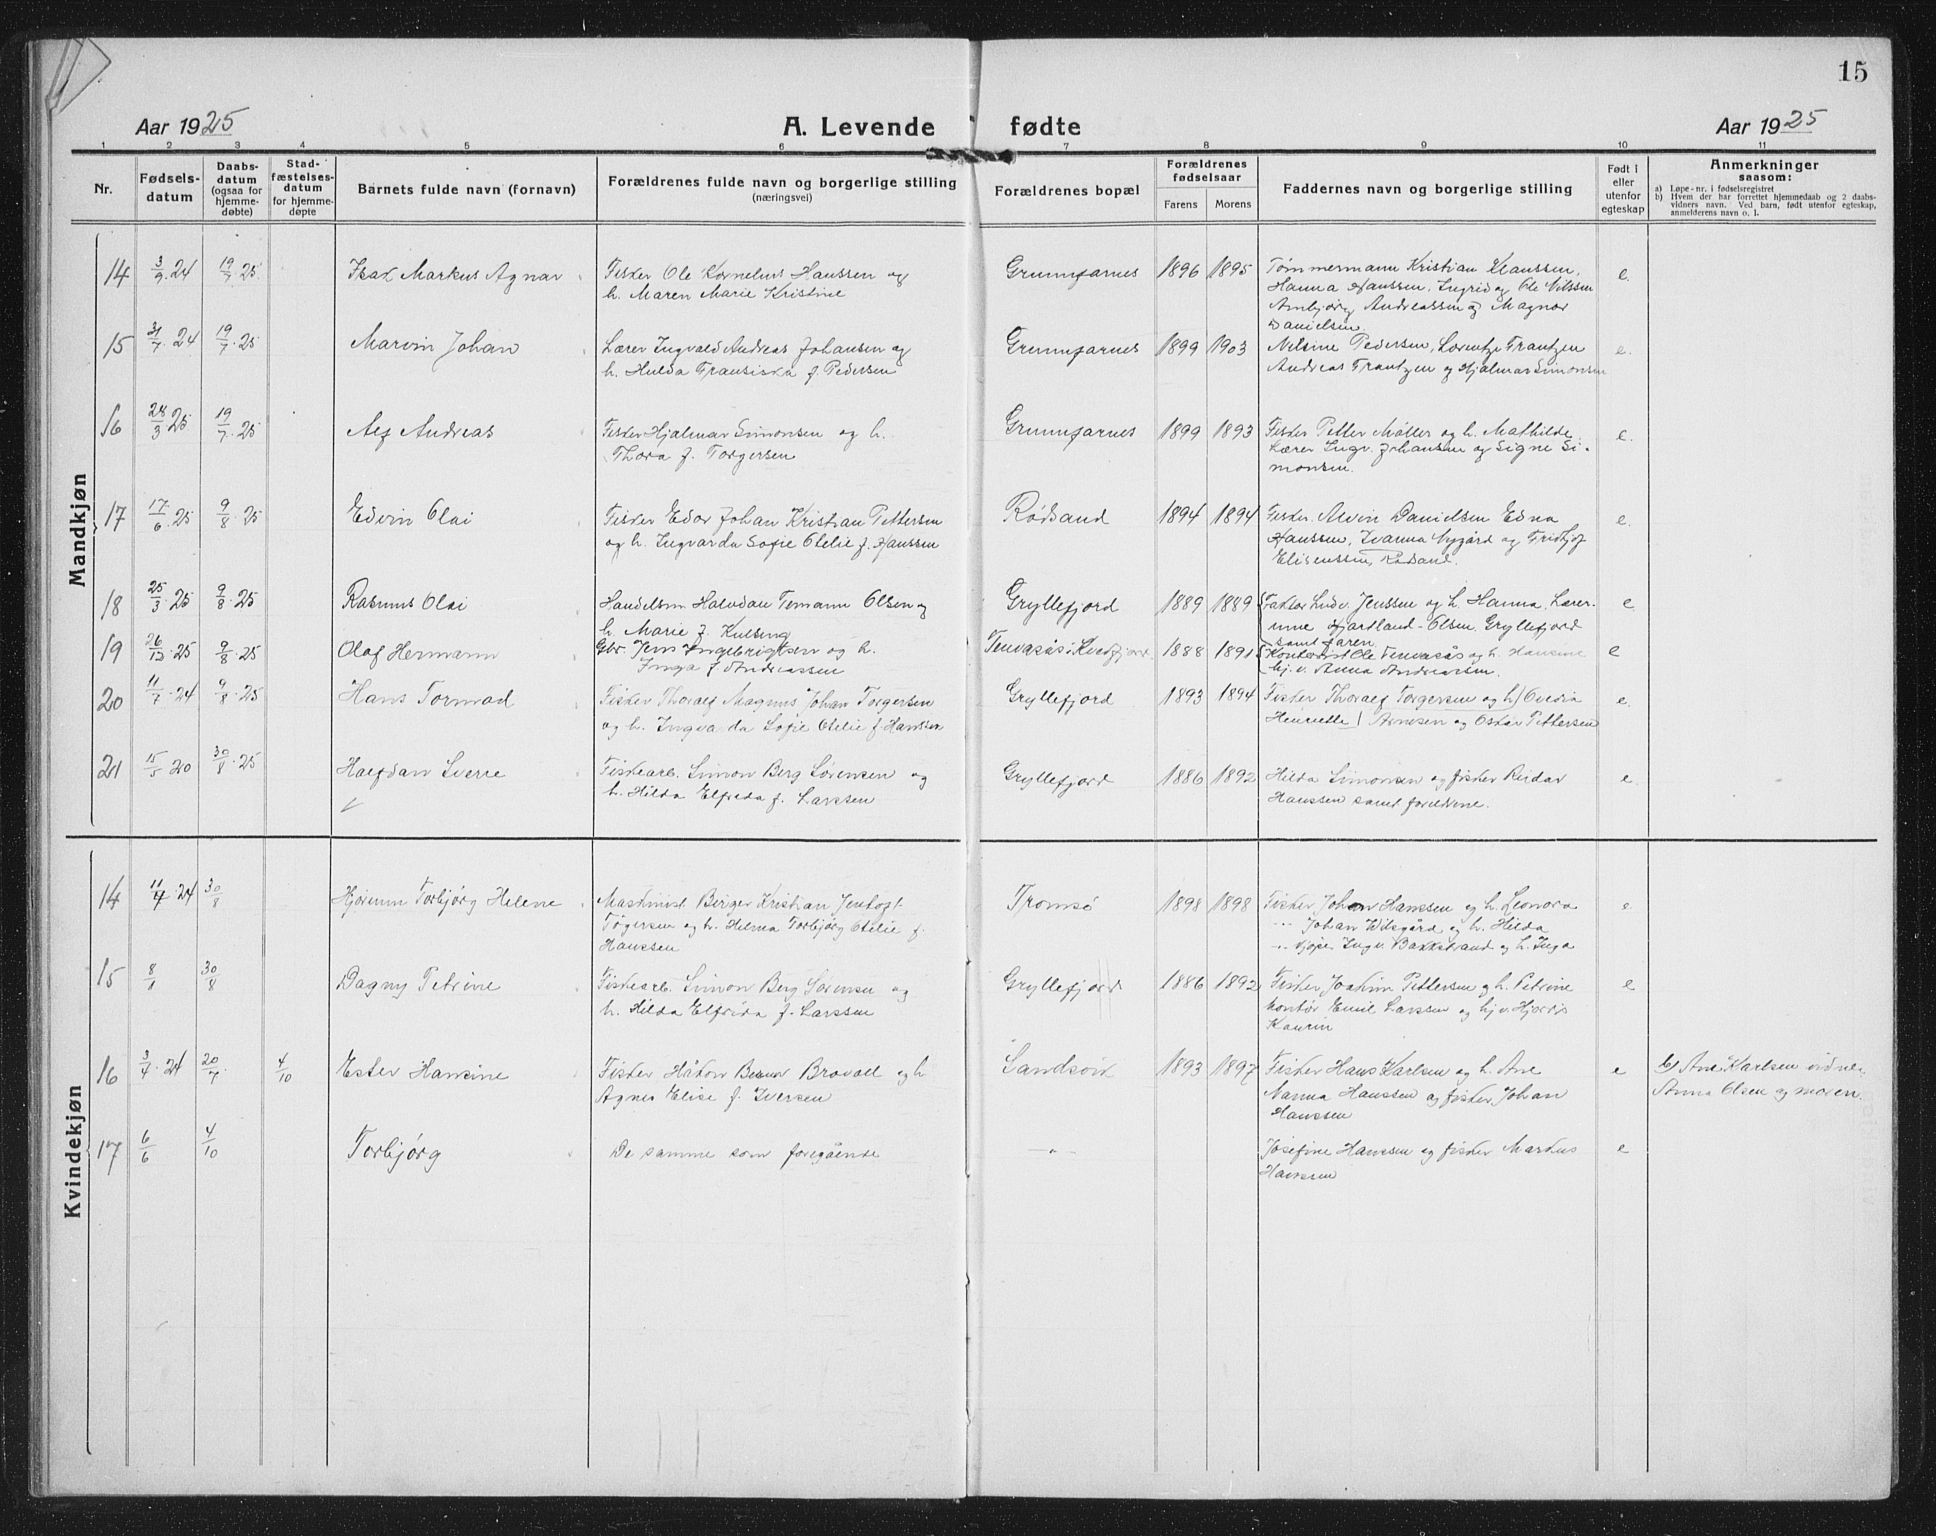 15
Aar 1925 A. Levende fødte Aar 1925
1 2 3 4 5 6 7 8 9 10 11
Nr.
Fødselsdatum
Daabsdatum (ogsaa for hjemmedøbte)
Stadfæstelsesdatum for hjemmedøpte
Barnets fulde navn (fornavn)
Forældrenes fulde navn og borgerlige stilling
(næringsvei)
Forældrenes bopæl
Forældrenes fødselsaar
Farens Morens
Faddernes navn og borgerlige stilling
Født i eller utenfor egteskap
Anmerkninger
saasom:
a) Løpe-nr. i fødselsregistret
b) Hvem der har forrettet hjemmedaab og 2 daabs-
vidners navn. Ved barn, født utenfor egteskap,
anmelderens navn o. l.
Mandkjøn
14 3/9.24 19/7.25 Isax Markus Agnar Fisker Ole Kornelius Hanssen og Grunnfarnes 1896 1895 Tømmermann Kristian Klaussen, e.
h. Maren Marie Kristine Hanna Hanssen, Ingrid og Ole Nilssen
Arnbjørg Andreassen og Magnor
Danielsen
15 31/7.24 19/7.25 Marvin Johan Lærer Ingvald Andreas Johansen og Grunnfarnes 1899 1903 Nilsine Pedersen, Lorentze Frantzen e.
h. Hulda Fransiska f. Pedersen Andreas Frantzen og Hjalmar Simonsen
16 28/3.25 19/7.25 Alf Andreas Fisker Hjalmar Simonsen og h. Grunnfarnes 1899 1893 Fisker Petter Møller og h. Mathilde e.
Thora f. Torgersen Lærer Ingv. Johansen og Signe Si-
monsen.
17 17/6.25 9/8.25 Edvin Olai Fisker Edor Johan Kristian Pettersen Rødsand 1894 1894 Fisker Alvin Danielsen Edna e.
og h. Ingvarda Sofie Otelie f. Hanssen Hanssen, Ivanna Nygård og Fridtjof
Elisenssen, Rødsand.
18 25/3.25 9/8.25 Rasmus Olai Handelsm. Halvdan Temann Olsen og Gryllefjord 1889 1889 Faktor Ludv. Jenssen og h. Hanna, Lærer- e
h. Marie f. Kulseng inne Hjartland-Olsen, Gryllefjord
samt faren.
19 26/12.25 9/8.25 Olaf Hermann Gbr. Jens Ingebrigtsen og h. 1888 1891 Kontorist Ole Tenvasås og h. Hansine e
Inga f. Andreassen hj.v. Anna Andreassen.
20 11/7.24 9/8.25 Hans Tormod Fisker Thoralf Magnus Johan Torgersen Gryllefjord 1893 1894 Fisker Thoralf Torgersen og h) Ovedia e.
og h. Ingvarda Sofie Otelie f Hanssen Henriette) Arnesen og Oskar Pettersen
21 15/5.20 30/8.25 Halfdan Sverre Fiskearb. Simon Berg Sørensen og Gryllefjord 1886 1892 Hilda Simonsen og fisker Reidar e.
h. Hilda Elfrida f. Larssen Hanssen samt foreldrene.
Kvindekjøn
14 11/7.24 30/8 Torbjørg Helene Maskinist Birger Kristian Jentoft Tromsø 1898 1898 Fisker Johan Hanssen og h. Leonora e
Tøgersen og h. Hilma Torbjørg Otelie f. Johan Wilsgård og h. Hilda
Hanssen Ingv. Bakkstrand og h. Inga
15 8/1 30/8 Dagny Petrine Fiskearb. Simon Berg Sørensen og Gryllefjord 1886 1892 Fisker Joakim Pettersen og h. Petrine e
h. Hilda Elfrida f. Larssen kontor Emil Larssen og hj.v. Hjørdis
Kaurin
16 3/4.24 20/7. 4/10 Ester Hansine Fisker Håkon Bravoll og h Sandsvik 1893 1897 Fisker Hans Karlsen og h. Ane e b) Ane Karlsen vidne:
Agnes Elise f. Iversen Nanna Hanssen og fisker Johan Anna Olsen og moren.
Hanssen
17 6/6 4/10 Torbjørg De samme som foregående —"— Josefine Hanssen og fisker Markus e
Hanssen